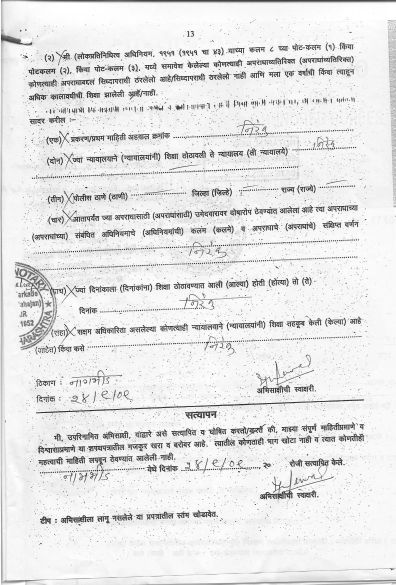 13
(२) मी (लोकप्रतिनिधित्व अधिनियम, १९५१ (१९५१ चा ४३) याच्या कलम ८ च्या पोट-कलम (१) किंवा
पोटकलम (२), किंवा पोट-कलम (३), मध्ये समावेश केलेल्या कोणत्याही अपराधाव्यतिरिक्त (अपराधांव्यतिरिक्त)
कोणत्याही अपराधाबद्दल सिध्दापराधी ठरलेलो आहे/सिध्दापराधी ठरलेलो नाही आणि मला एक वर्षाची किंवा त्याहून
अधिक कालावधीची शिक्षा झालेली आहे/नाही.
सादर करील :-
(एक) प्रकरण/प्रथम माहिती अहवाल क्रमांक निरंक
(दोन) ज्या न्यायालयाने (न्यायालयांनी) शिक्षा ठोठावली ते न्यायालय (ली न्यायालये) निरंक
(तीन) पोलीस ठाणे (ठाणी) जिल्हा (जिल्हे) राज्य (राज्ये)
(चार) आतापर्यंत ज्या अपराधासाठी (अपराधांसाठी) उमेदवारावर दोषारोप ठेवण्यात आलेला आहे त्या अपराधाच्या
(अपराधांच्या) संबंधित अधिनियमाचे (अधिनियमांची) कलम (कलमे) व अपराधाचे (अपराधांचे) संक्षिप्त वर्णन
निरंक
(पाच) ज्या दिनांकाला (दिनांकांना) शिक्षा ठोठावण्यात आली (आल्या) होती (होत्या) तो (ते)
दिनांक निरंक
(सहा) सक्षम अधिकारिता असलेल्या कोणत्याही न्यायालयाने (न्यायालयांनी) शिक्षा तहकूब केली (केल्या) आहे
(आहेत) किंवा कसे निरंक
ठिकाण : नागभीड
दिनांक : २४/९/०९
अभिसाक्षीची स्वाक्षरी.
सत्यापन
मी, उपरिनामित अभिसाक्षी, याद्वारे असे सत्यापित व घोषित करतो/करते की, माझ्या संपूर्ण माहितीप्रमाणे व
विश्वासाप्रमाणे या शपथपत्रातील मजकूर खरा व बरोबर आहे. त्यातील कोणताही भाग खोटा नाही व त्यात कोणतीही
महत्वाची माहिती लपवून ठेवण्यात आलेली नाही.
नागभीड येथे दिनांक २४/९/०९ २० रोजी सत्यापित केले.
अभिसाक्षीची स्वाक्षरी.
टीप : अभिसाक्षीला लागू नसलेले या प्रपत्रातील स्तंभ खोडावेत.
NOTARY
MAHARASHTRA